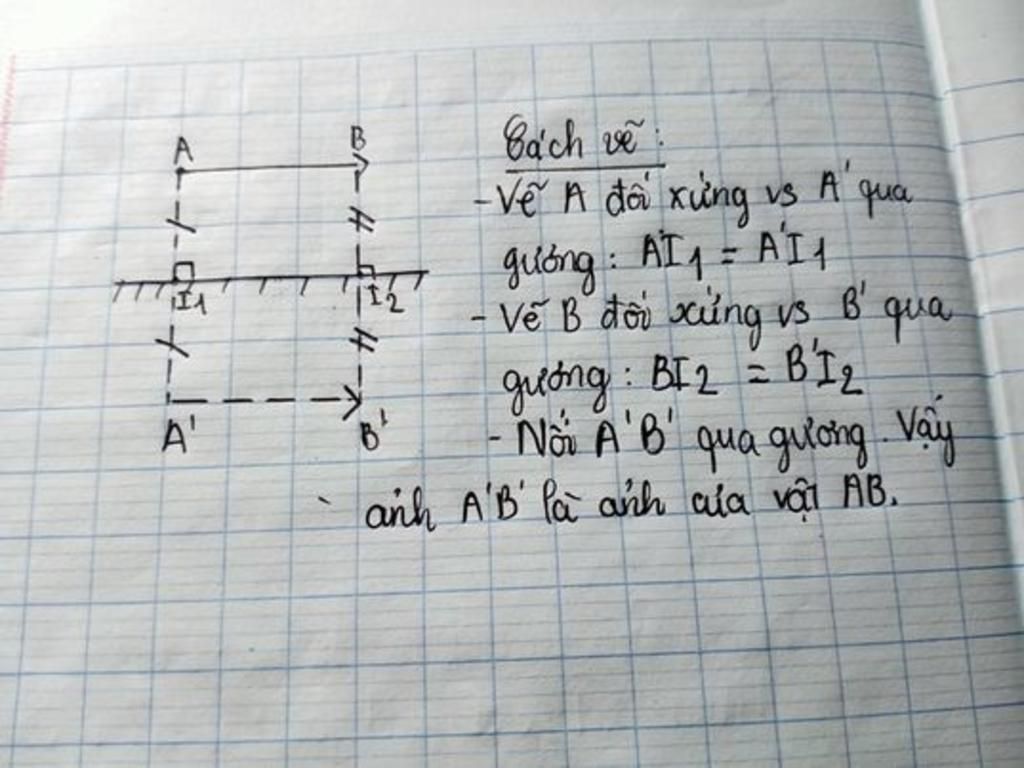 A B
Cách vẽ:
- Vẽ A đối xứng vs A' qua
gương: AI1 = A'I1
I1 I2
- Vẽ B đối xứng vs B' qua
gương: BI2 = B'I2
A' B'
- Nối A'B' qua gương. Vậy
ảnh A'B' là ảnh của vật AB.